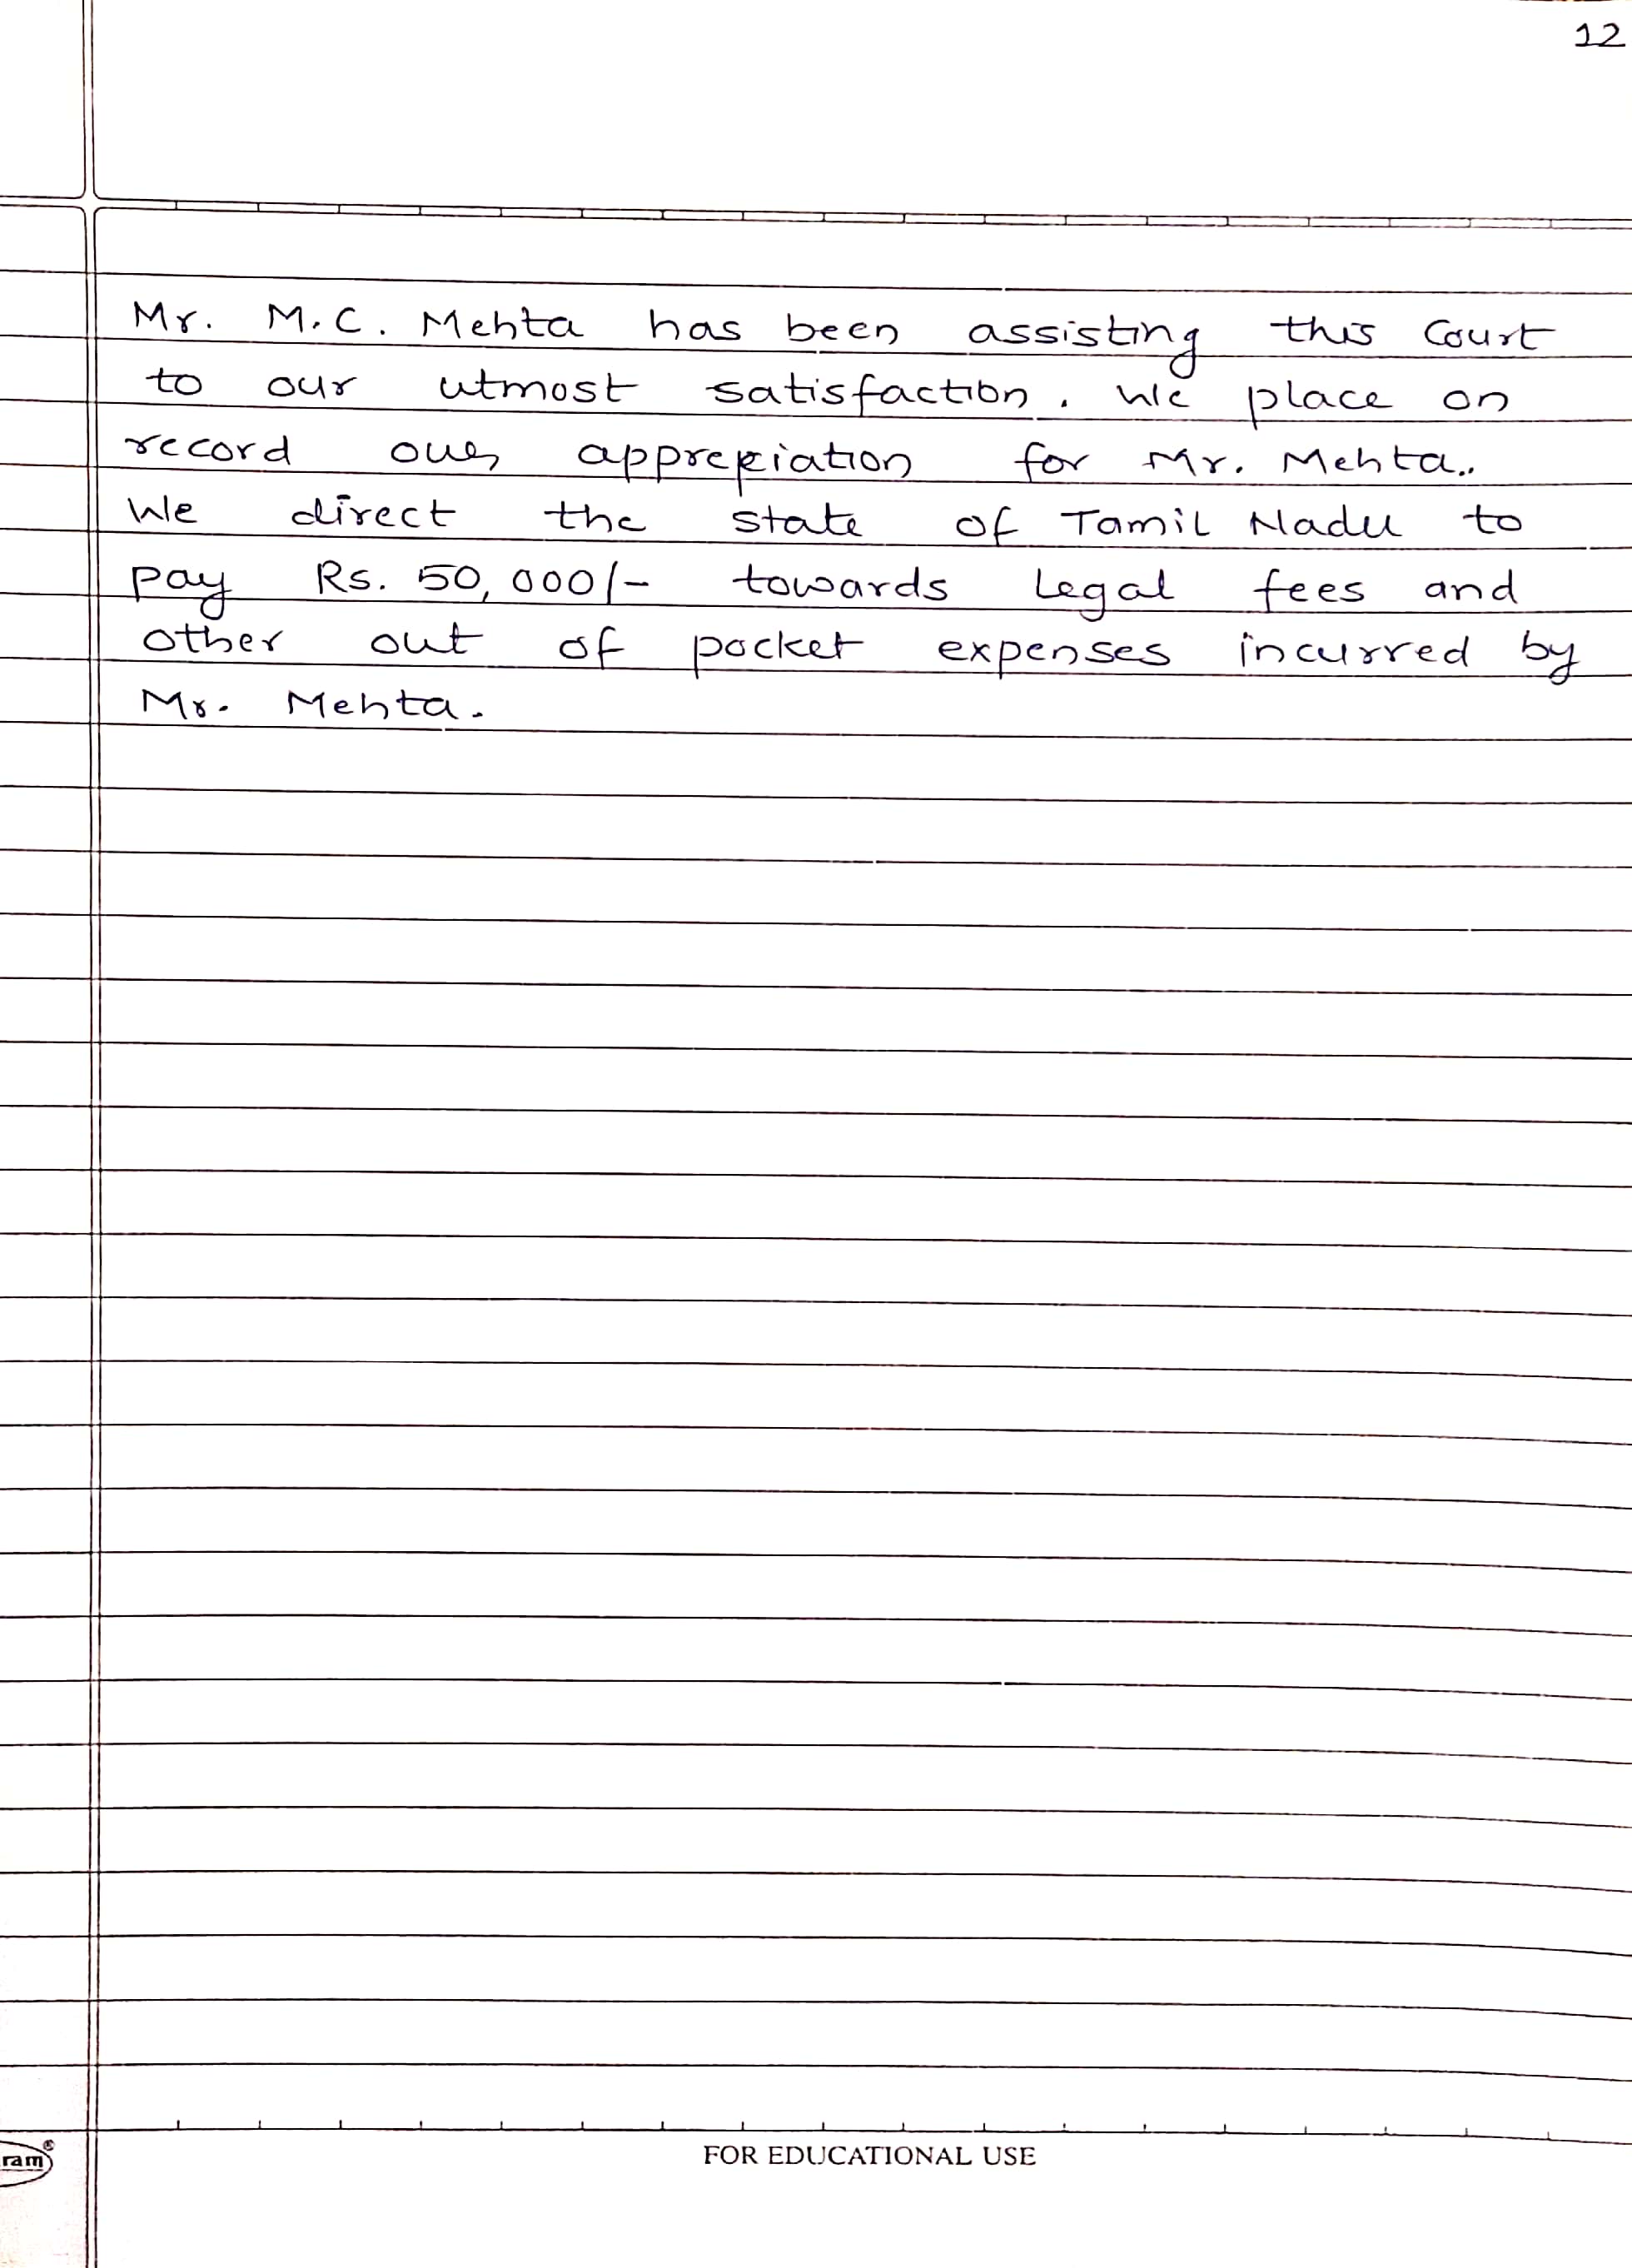 12
Mr. M.C. Mehta has been assisting this Court
to our utmost satisfaction. We place on
record our appreciation for Mr. Mehta..
We direct the state of Tamil Nadu to
pay Rs. 50,000/- towards Legal fees and
other out of pocket expenses incurred by
Mr. Mehta.
ram®
FOR EDUCATIONAL USE